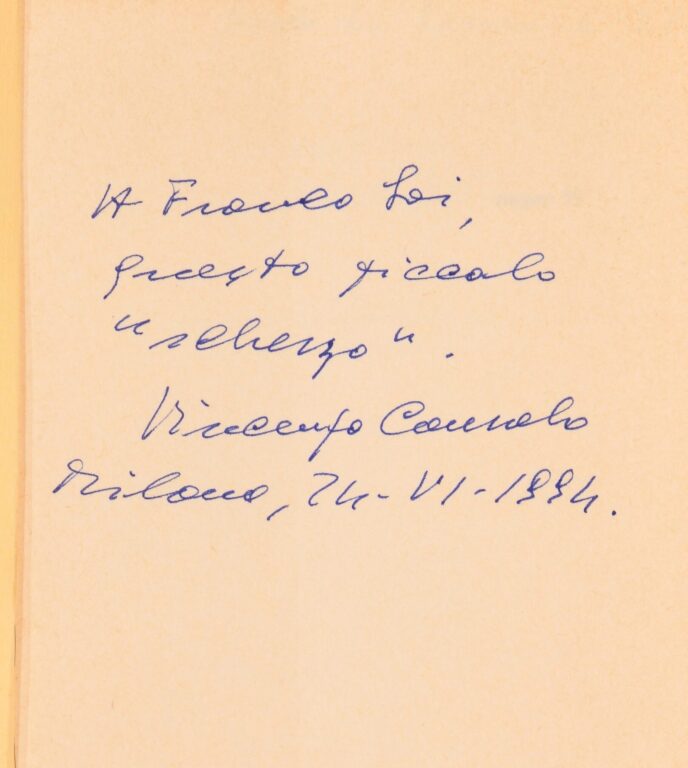 A Franco Loi,
questo piccolo
"scherzo".
Vincenzo Consolo
Milano, 24-VI-1994.